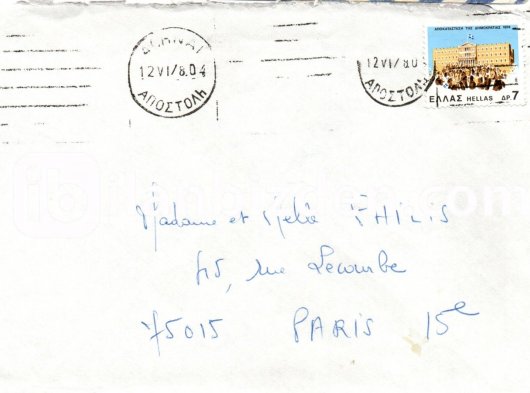 ΑΘΗΝΑΙ
12 VI 78.04
ΑΠΟΣΤΟΛΗ
12 VI 78.0
ΑΠΟΣΤΟΛΗ
ΑΠΟΚΑΤΑΣΤΑΣΗ ΤΗΣ ΔΗΜΟΚΡΑΤΙΑΣ 1974
ΕΛΛΑΣ HELLAS ΔΡ. 7
Madame et
rue Lecourbe
75015 PARIS 15e